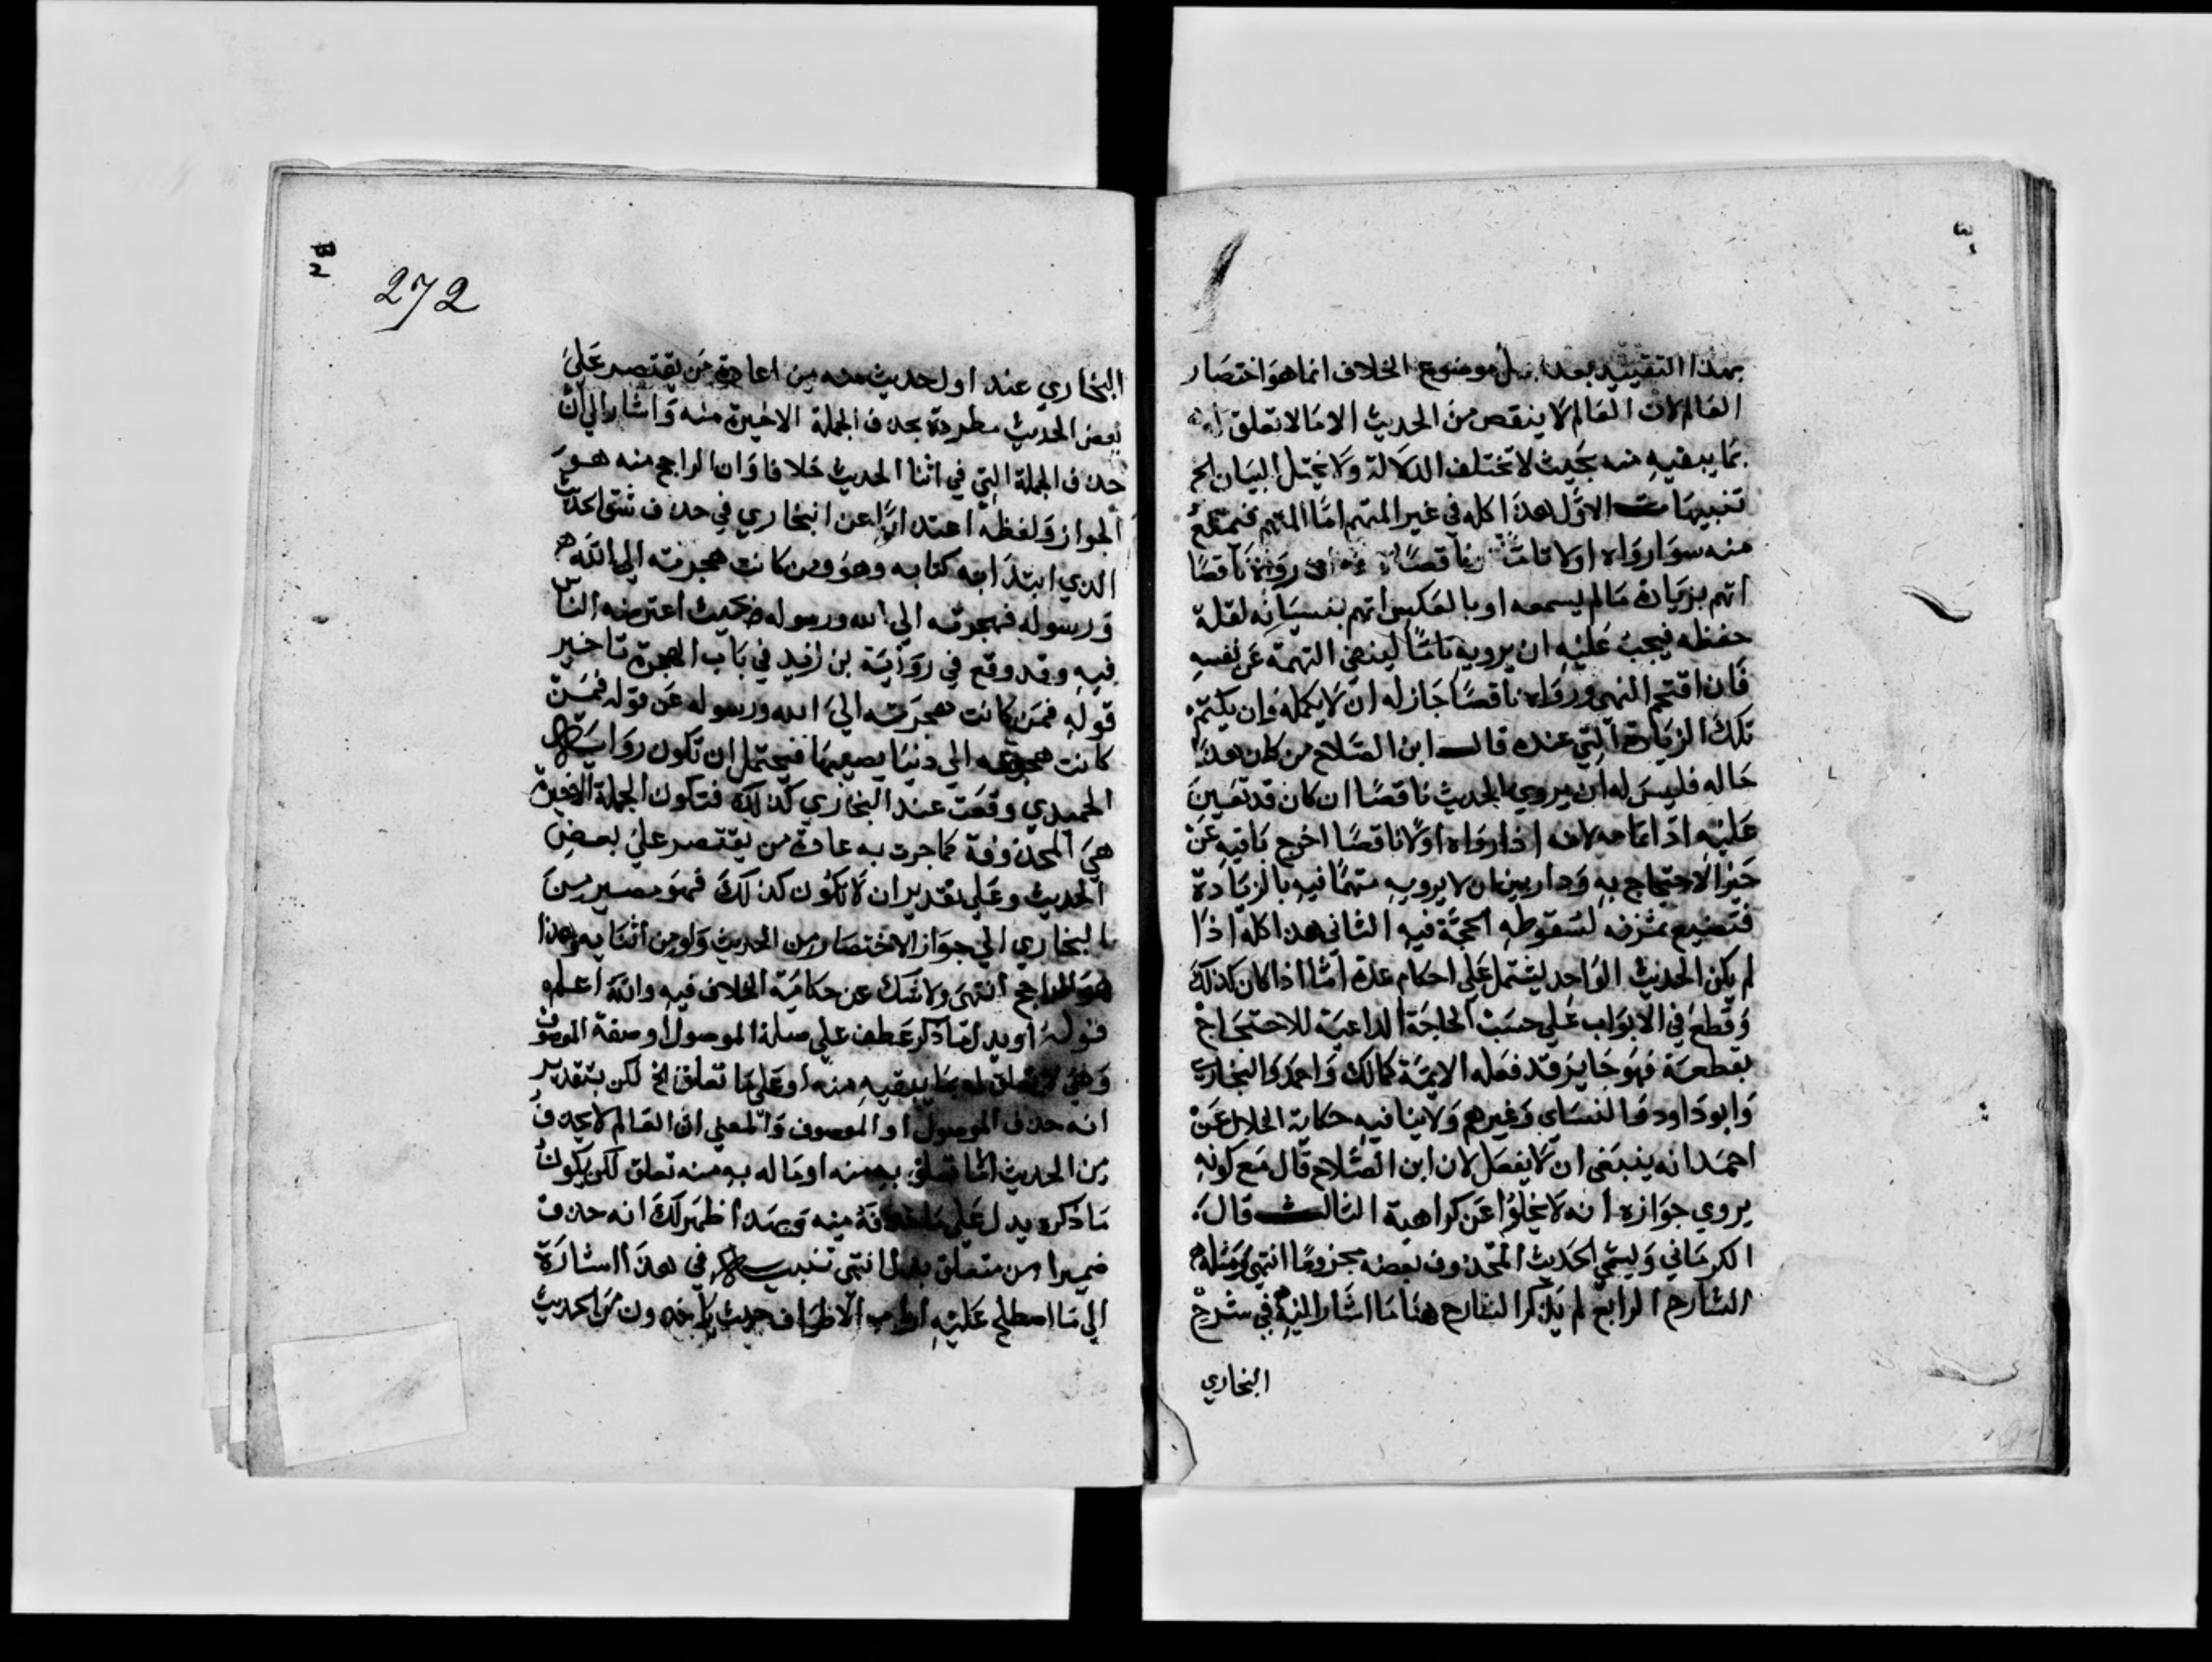 بهذا التقييد بعد بل موضوع الخلاف انما هو اختصار
العالم لان العالم لا ينقص من الحديث الا ما لا تعلق له
بما يبقيه منه بحيث لا تختلف الدلالة ولا يختل البيان الخ
تنبيهات الاول هذا كله في غير المتهم اما المتهم فيمتنع
منه سوا رواه اولا تاما ناقصا رواه ناقصا
اتهم بزيادة مالم يسمعه او بالعكس اتهم بنسيانه لقلة
حفظه فيجب عليه ان يرويه تاما لينفي التهمة عن نفسه
فان اقتحم النهي ورواه ناقصا جاز له ان لا يكمله وان يكتم
تلك الزيادة التي عنده قال ابن الصلاح من كان هذا
حاله فليس له ان يروي الحديث ناقصا ان كان قد تعين
عليه اذا تمامه لانه اذا رواه اولا ناقصا اخرج باقيه عن
حيز الاحتجاج به ودار بين ان لا يرويه متهما فيه بالزيادة
فتضيع ثمرته لسقوط الحجة فيه الثاني هذا كله اذا
لم يكن الحديث الواحد يشتمل على احكام عدة اما اذا كان كذلك
وقطع في الابواب على حسب الحاجة الداعية للاحتجاج
بقطعة فهو جايز وقد فعله الايمة كمالك واحمد والبخاري
وابو داود والنساي وغيرهم ولا ينافيه حكاية الخلال عن
احمد انه ينبغي ان لا يفعل لان ابن الصلاح قال مع كونه
يروي جوازه انه لا يخلوا عن كراهية الثالث قال
الكرماني وليسمي الحديث المحذوف بعضه مجزوما انتهى ومثله
الشارح الرابع لم يذكر الشارح هنا ما اشار اليه في شرح
البخاري
272
البخاري عند اول حديث منه من اعادة من يقتصر على
بعض الحديث مطردة بحذف الجملة الاخيرة منه واشار الى ان
حذف الجملة التي في اثنا الحديث خلافا وان الراجح منه هو
الجواز ولفظه اعتذار عن البخاري في حذف شق الحديث
الذي ابتدا به كتابه وهو ومن كانت هجرته الى الله
ورسوله فهجرته الى الله ورسوله حيث اعترضه الناس
فيه وقد وقع في رواية بن زفيد في باب الهجرة تاخير
قوله فمن كانت هجرته الى الله ورسوله عن قوله فمن
كانت هجرته الى دنيا يصيبها فيحتمل ان تكون رواية
الحميدي وقعت عند البخاري كذلك فتكون الجملة الاخيرة
هي المحذوفة كما جرت به عادة من يقتصر على بعض
الحديث وعلى تقدير ان لا يكون كذلك فهو مصير من
البخاري الى جواز الاختصار من الحديث ولو من اثنايه وهذا
هو الراجح انتهى ولا شك عن حكاية الخلاف فيه والله اعلم
قوله او يدل ما ذكر عطف على صلة الموصول او صفة الموصوف
وهي لا تعلق له بما يبقيه منه او على ما تعلق الخ لكن بتقدير
انه حذف الموصول او الموصوف والمعنى ان العالم لا يحذف
من الحديث الا ما تعلق به منه او ما له به منه تعلق لكن يكون
ما ذكره يدل على ما حذفه منه وبهذا ظهر لك انه حذف
ضميرا من متعلق يدل انتهى تنبيه في هذا اشارة
الى ما اصطلح عليه اطراف الاطراف حيث ياخذون من الحديث